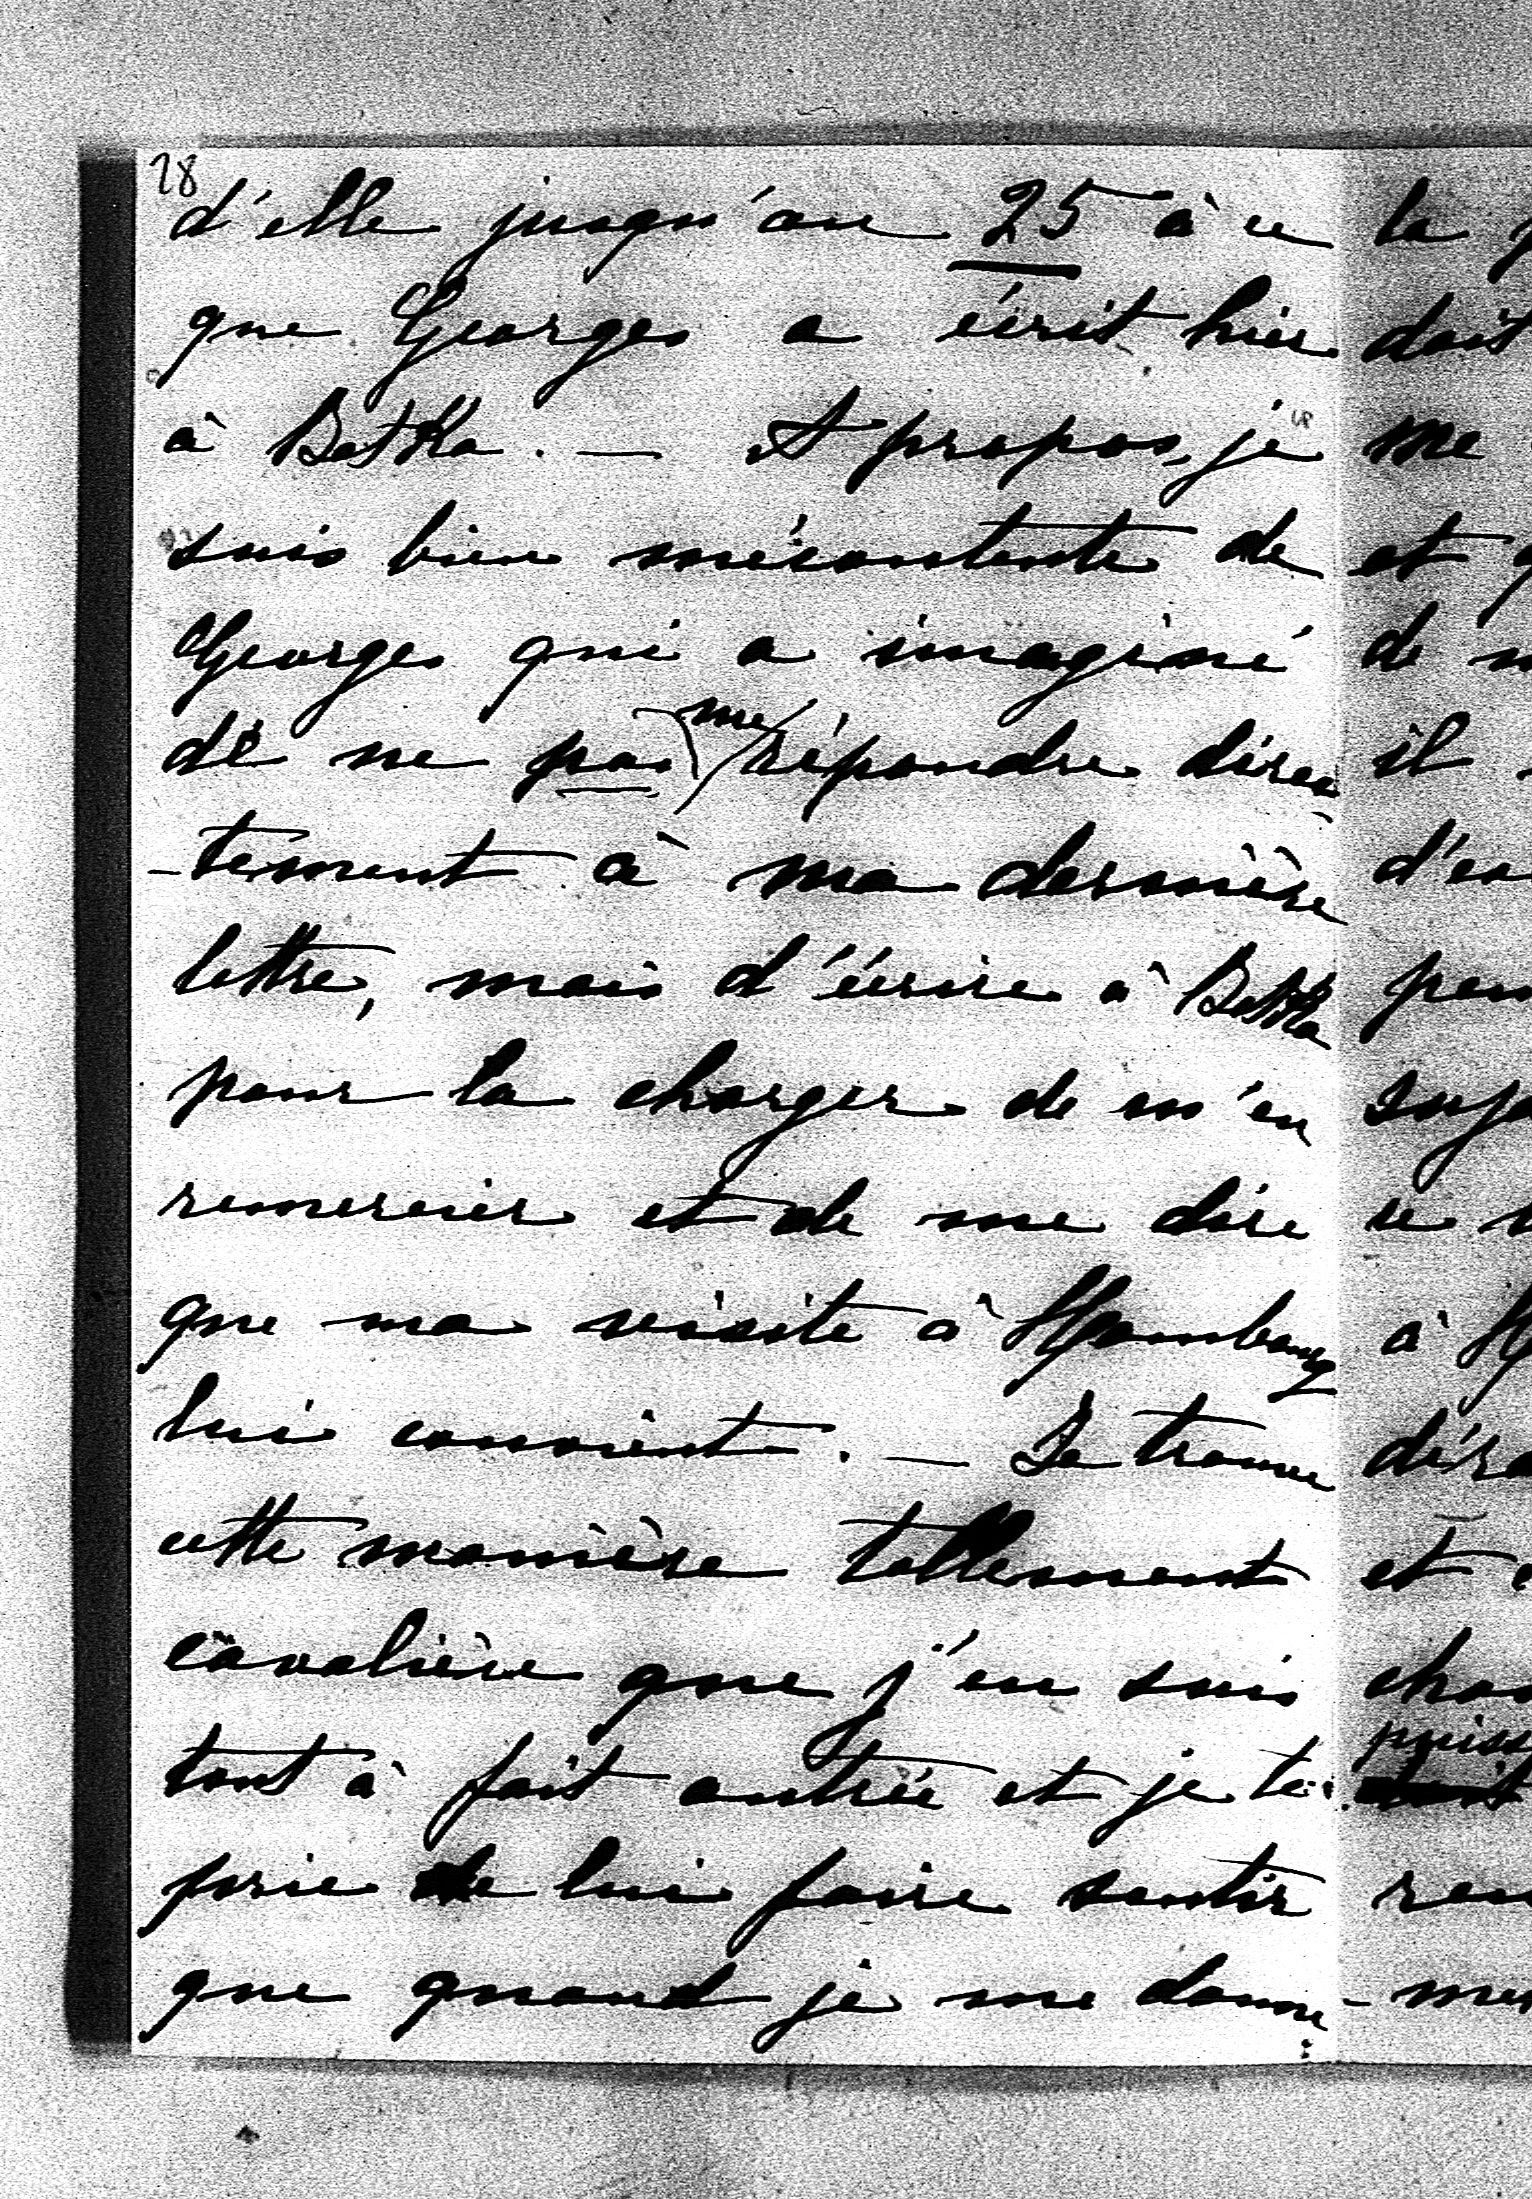 28
d'elle jusqu'au 25 à ce
que Georges a écrit hier
à Betka. — A propos, je
suis bien mécontente de
Georges qui a imaginé
de ne pas me répondre direc
-tement à ma dernière
lettre, mais d'écrire à Betka
pour la charger de m'en
remercier et de me dire
que ma visite à Hombourg
lui convient. — Je trouve
cette manière tellement
cavalière que j'en suis
tout à fait outrée et je te
prie de lui faire sentir
que quand je me donne
la
doit
me
et
de
il
à
et
puiss